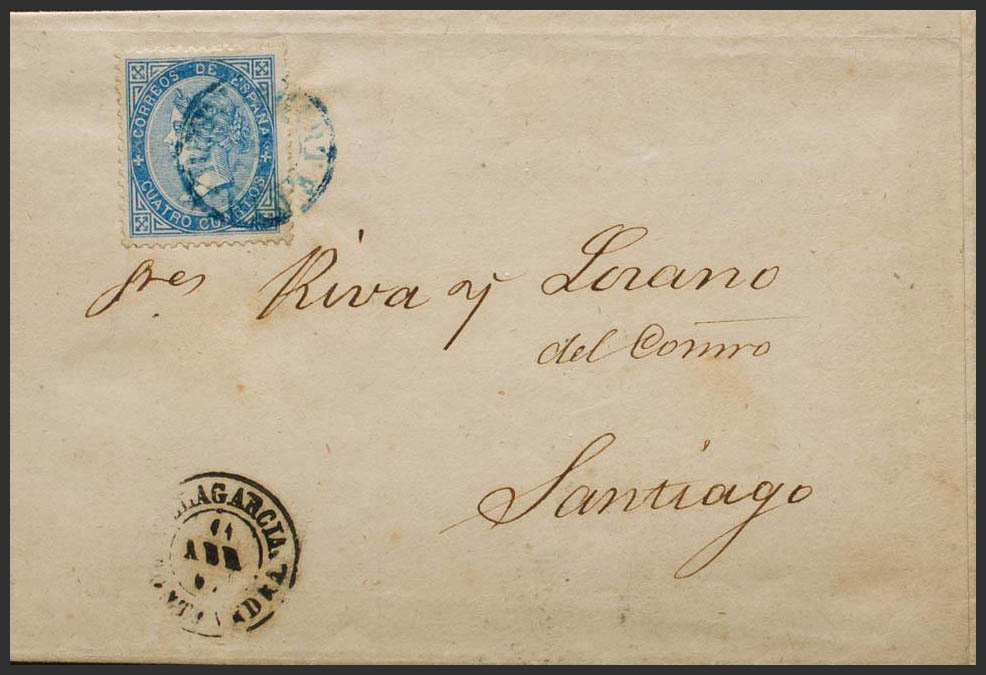 CORREOS DE ESPAÑA
CUATRO CUARTOS
Sres Riva y Lozano
del Comro
Santiago
LAGARCIA
ABR